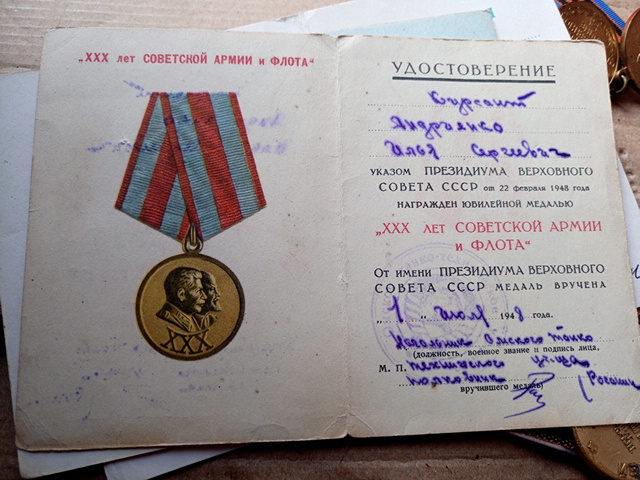 „XXX лет СОВЕТСКОЙ АРМИИ и ФЛОТА“
XXX
УДОСТОВЕРЕНИЕ
Курсант
Андриянко
Илья Сергеевич
УКАЗОМ ПРЕЗИДИУМА ВЕРХОВНОГО
СОВЕТА СССР от 22 февраля 1948 года
НАГРАЖДЕН ЮБИЛЕЙНОЙ МЕДАЛЬЮ
„XXX лет СОВЕТСКОЙ АРМИИ
и ФЛОТА“
От имени ПРЕЗИДИУМА ВЕРХОВНОГО
СОВЕТА СССР МЕДАЛЬ ВРУЧЕНА
„1“ июля 1948 года.
Начальник Омского танко
(должность, военное звание и подпись лица,
М. П. технического уч-ща
полковник
вручившего медаль)